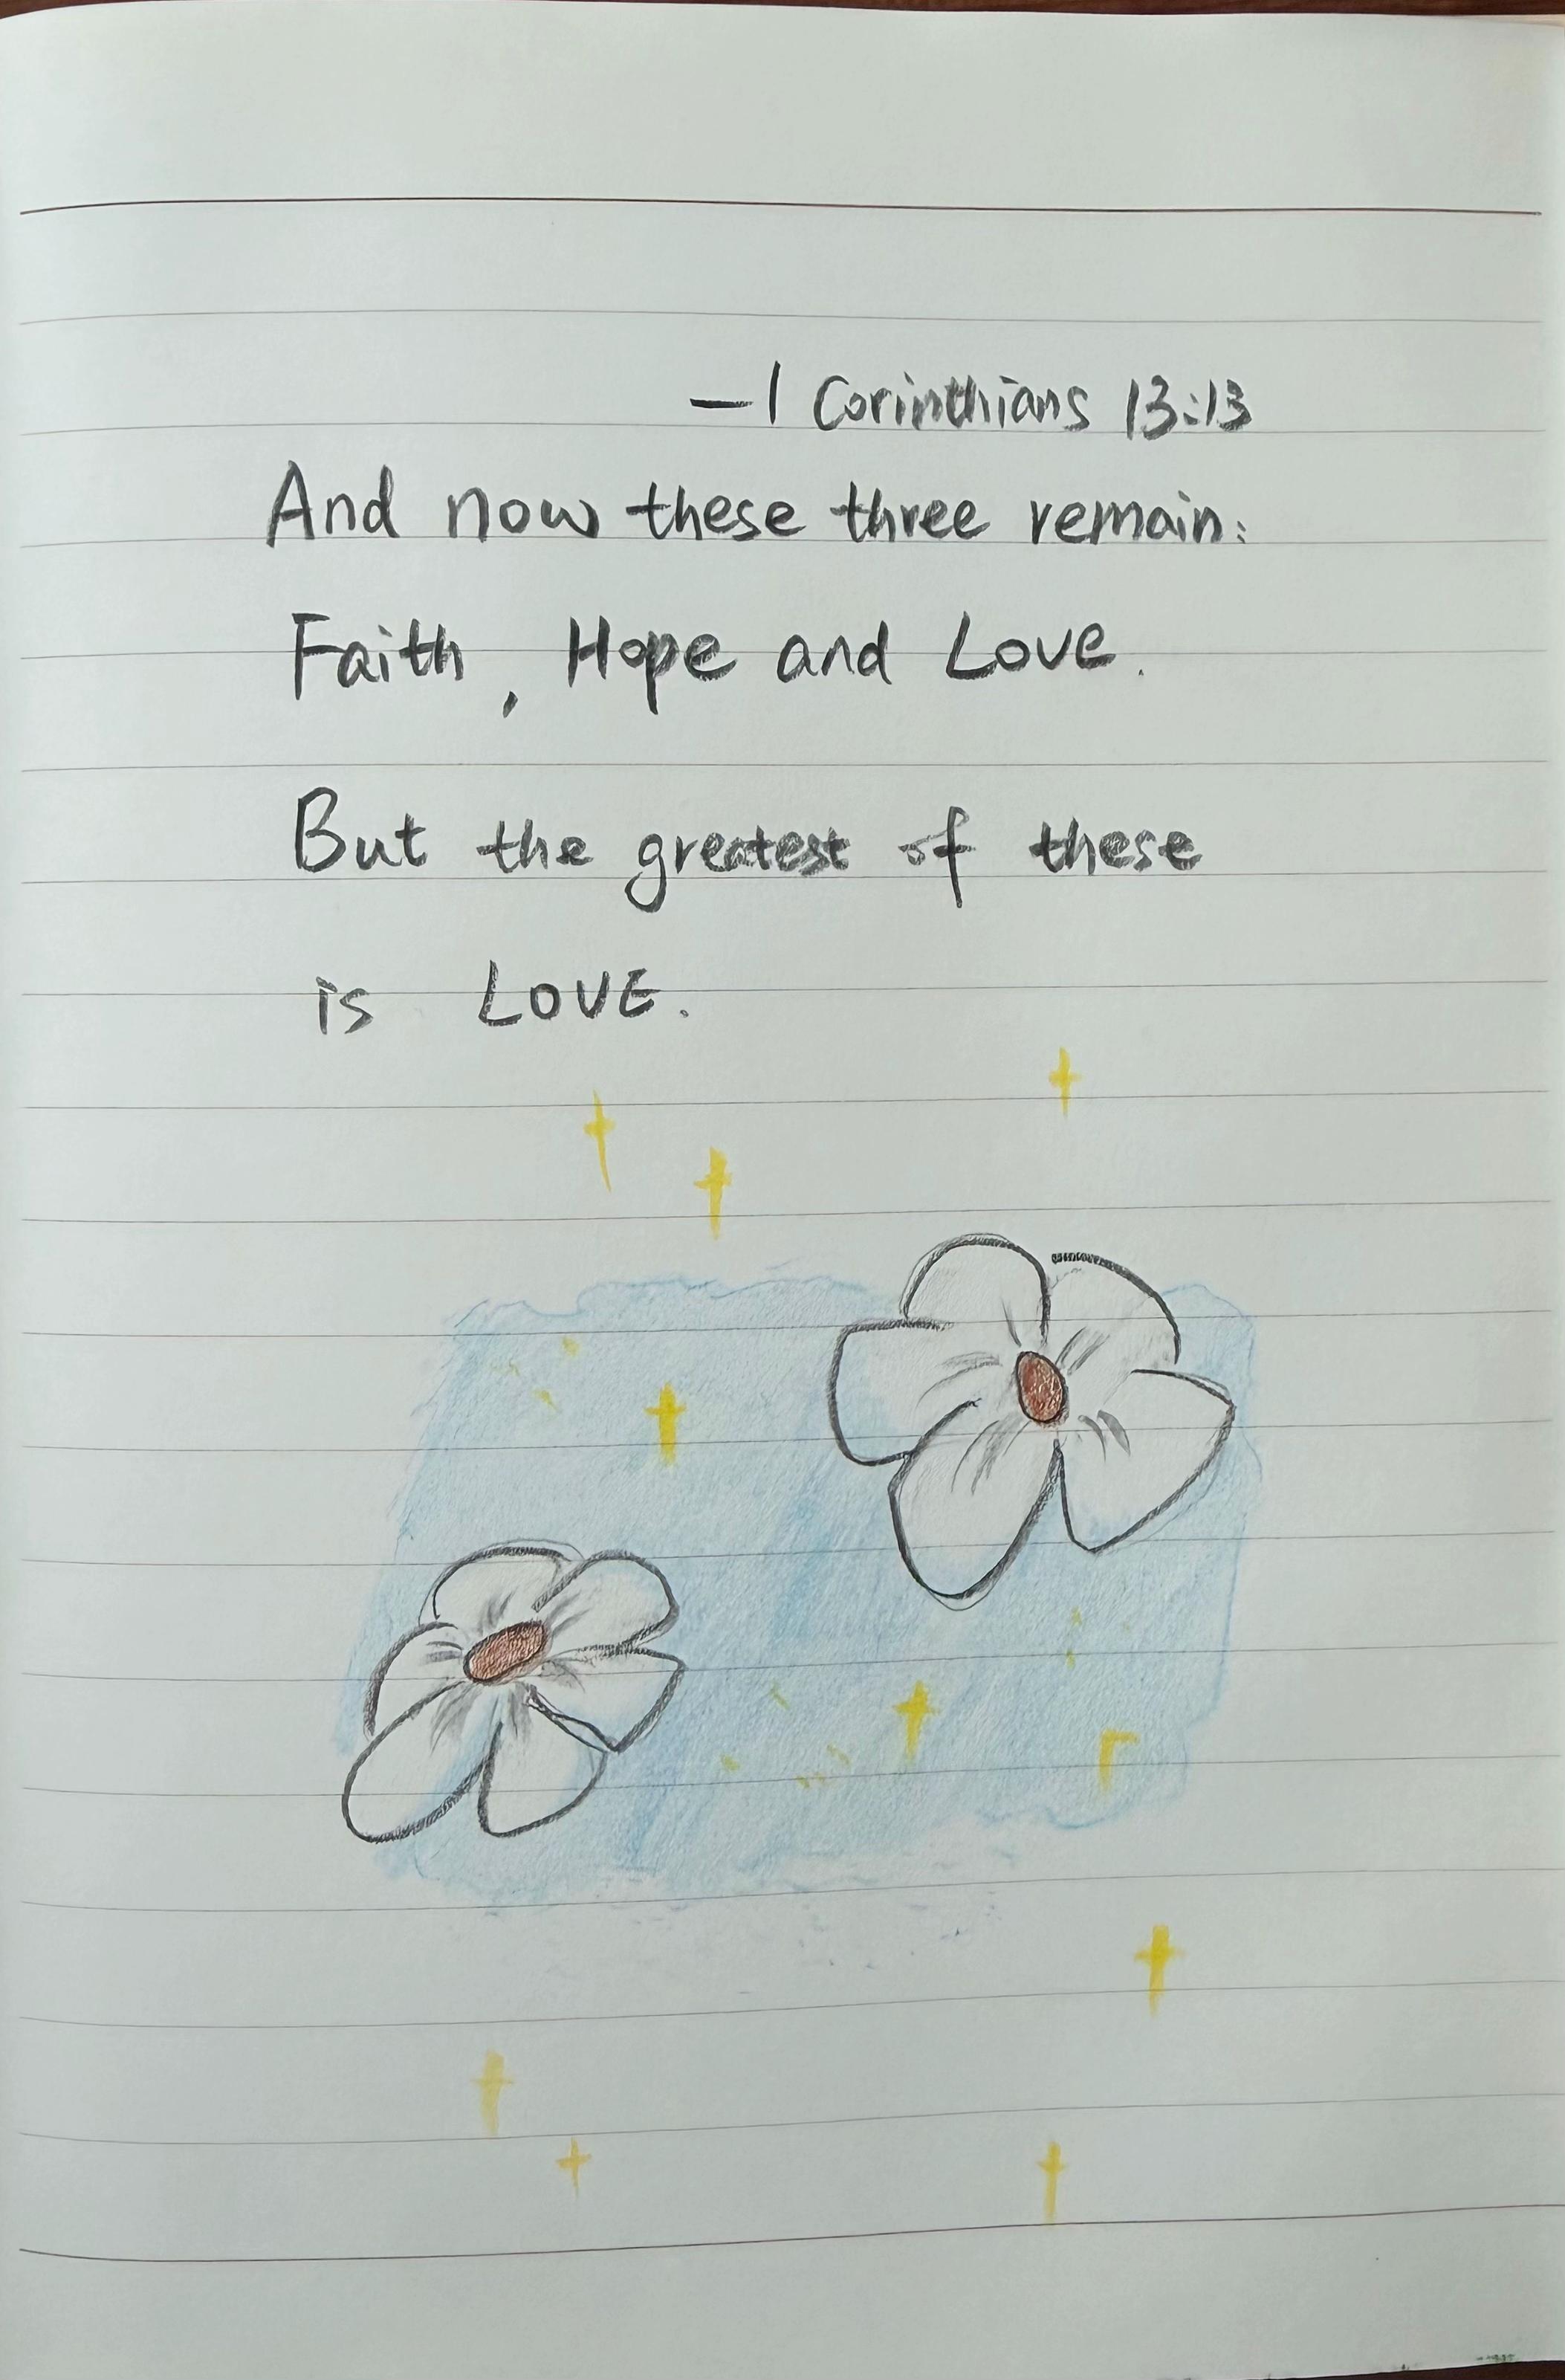 —1 Corinthians 13:13
And now these three remain:
Faith, Hope and Love.
But the greatest of these
is LOVE.